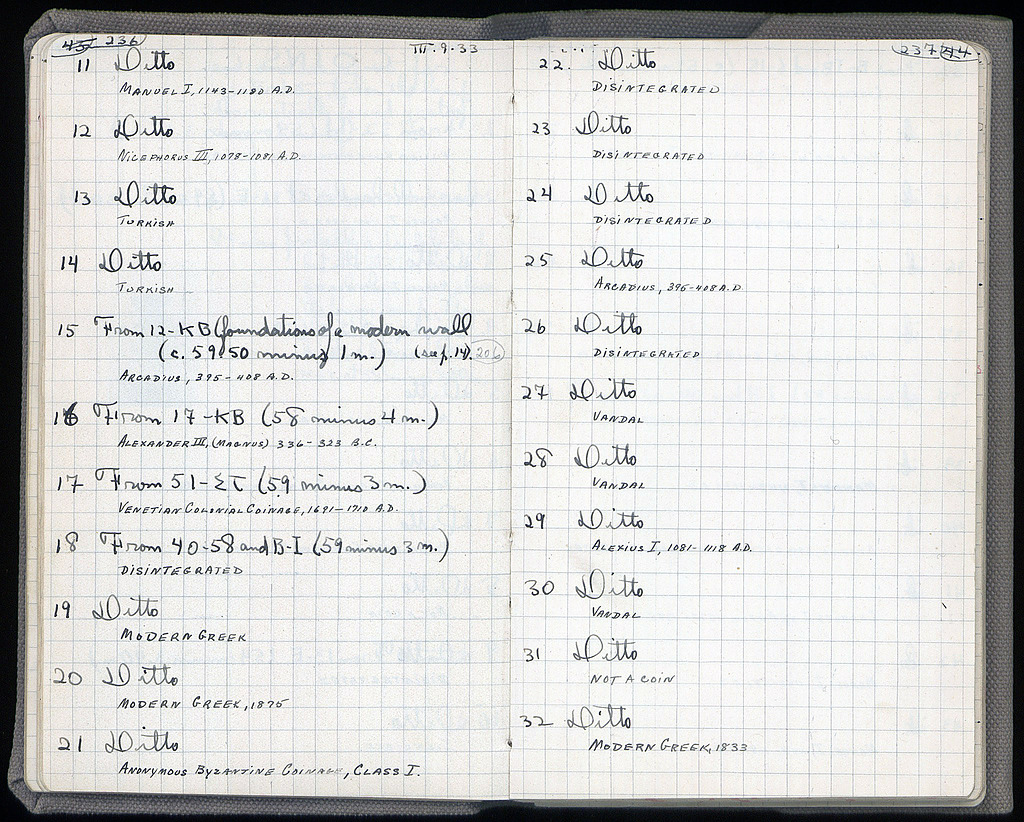 45 236
III.9.33
11 Ditto
MANUEL I, 1143-1180 A.D.
12 Ditto
NICEPHORUS III, 1078-1081 A.D.
13 Ditto
TURKISH
14 Ditto
TURKISH
15 From 12-KB (foundations of a modern wall
(c. 59.50 minus 1 m.) (see p. 14). 206
ARCADIUS, 395-408 A.D.
16 From 17-KB (58 minus 4 m.)
ALEXANDER III, (MAGNUS) 336-323 B.C.
17 From 51-ΣΤ (59 minus 3 m.)
VENETIAN COLONIAL COINAGE, 1691-1710 A.D.
18 From 40-58 and B-I (59 minus 3 m.)
DISINTEGRATED
19 Ditto
MODERN GREEK
20 Ditto
MODERN GREEK, 1875
21 Ditto
ANONYMOUS BYZANTINE COINAGE, CLASS I.
237 44
22. Ditto
DISINTEGRATED
23 Ditto
DISINTEGRATED
24 Ditto
DISINTEGRATED
25 Ditto
ARCADIUS, 395-408 A.D.
26 Ditto
DISINTEGRATED
27 Ditto
VANDAL
28 Ditto
VANDAL
29 Ditto
ALEXIUS I, 1081-1118 A.D.
30 Ditto
VANDAL
31 Ditto
NOT A COIN
32 Ditto
MODERN GREEK, 1833